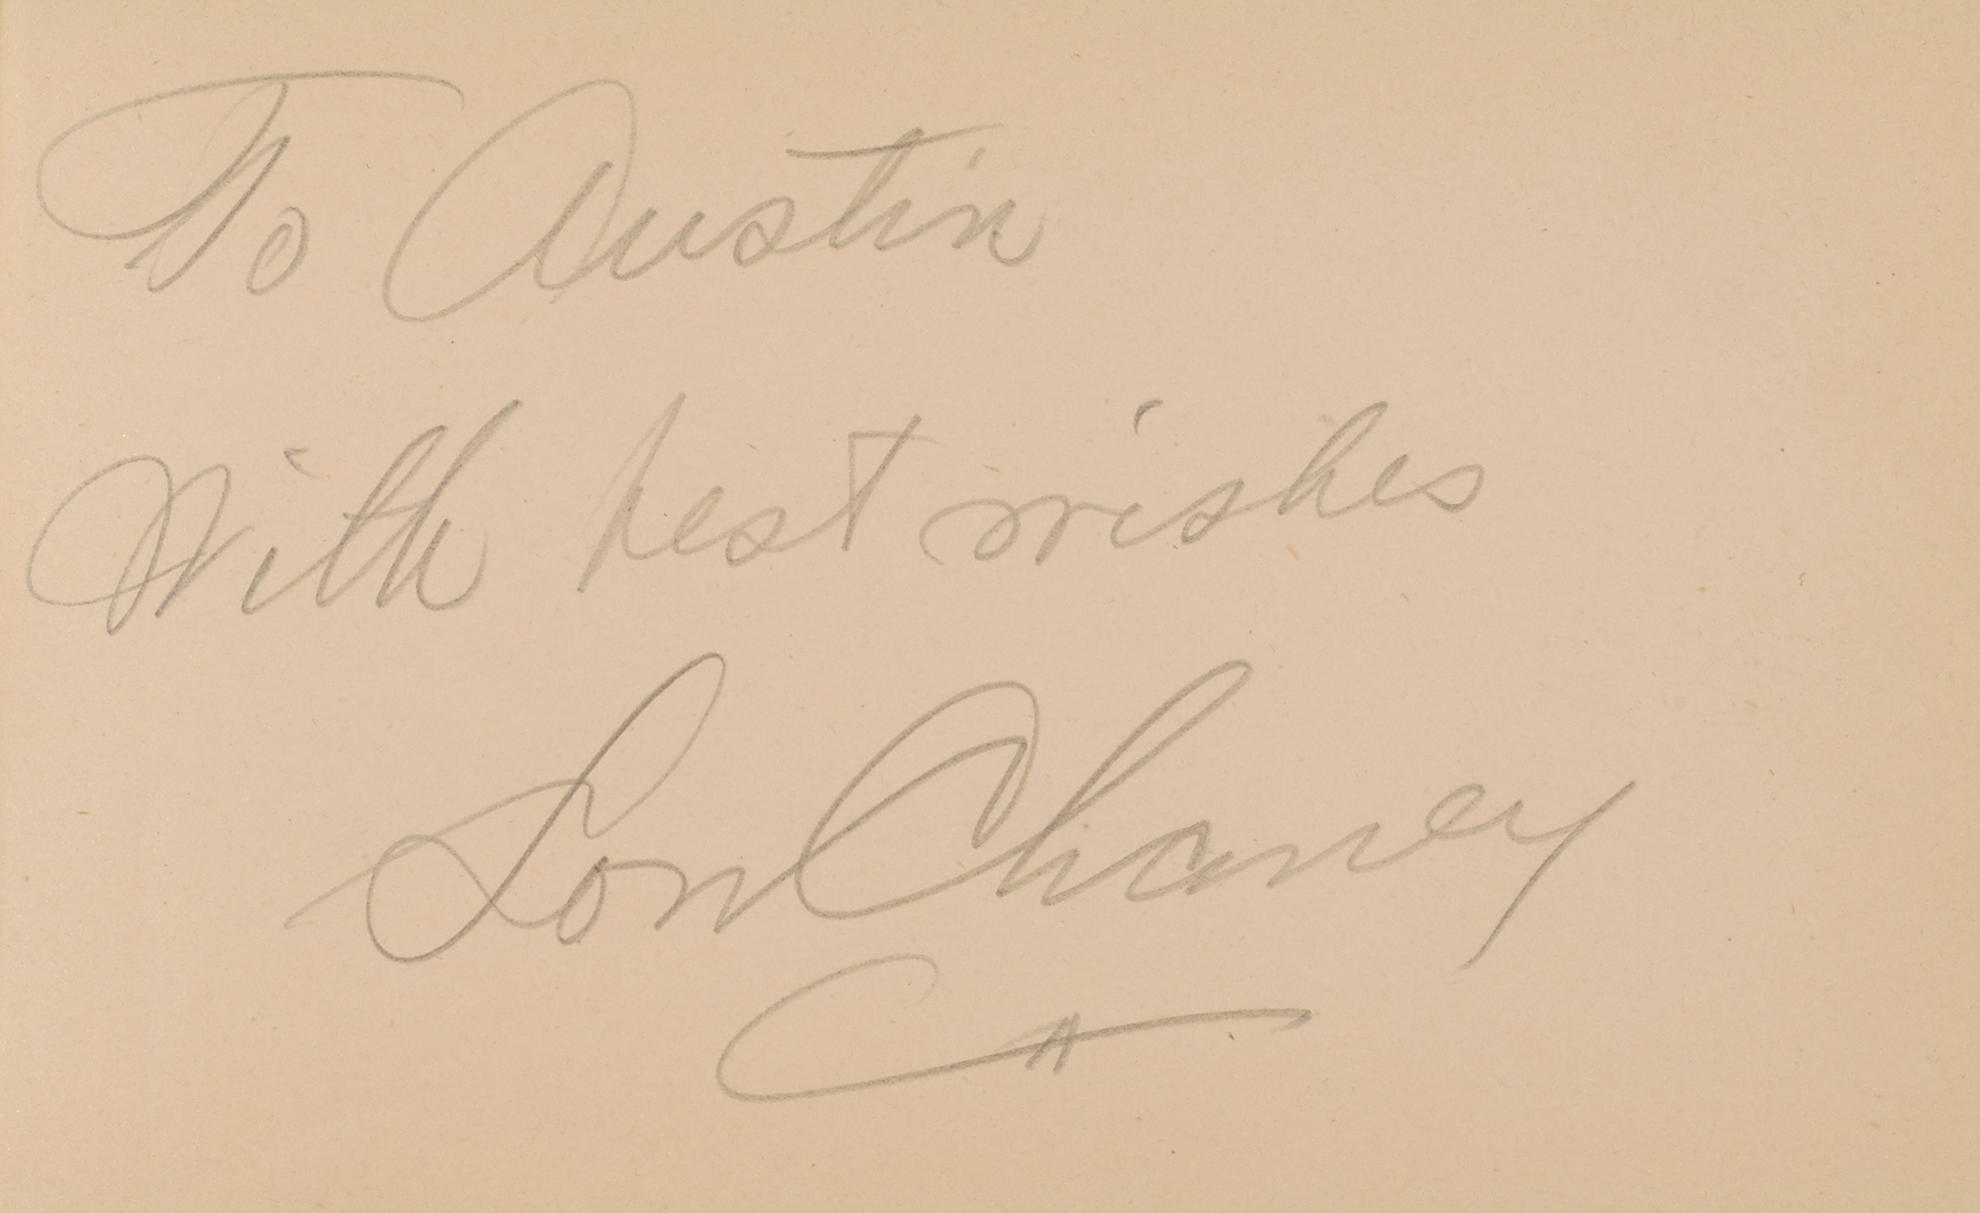 To Austin
With best wishes
Lon Chaney